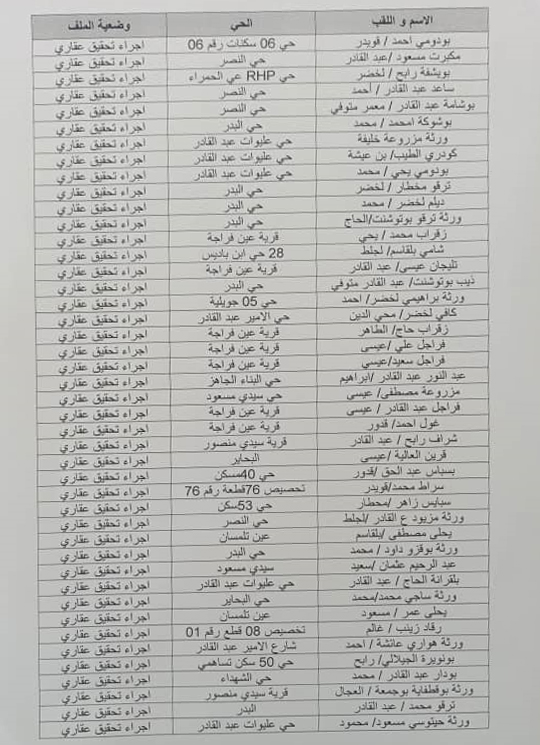 الاسم و اللقب الحي وضعية الملف
بودومي احمد / قويدر حي 06 سكنات رقم 06 اجراء تحقيق عقاري
مكبرت مسعود /عبد القادر حي النصر اجراء تحقيق عقاري
بويشفة رابح / لخضر حي RHP عي الحمراء اجراء تحقيق عقاري
ساعد عبد القادر / أحمد حي النصر اجراء تحقيق عقاري
بوشامة عبد القادر / معمر متوفي حي النصر اجراء تحقيق عقاري
بوشوكة امحمد / محمد حي البدر اجراء تحقيق عقاري
ورثة مزروعة خليفة حي عليوات عبد القادر اجراء تحقيق عقاري
كودري الطيب/ بن عيشة حي عليوات عبد القادر اجراء تحقيق عقاري
بودومي يحي / محمد حي عليوات عبد القادر اجراء تحقيق عقاري
ترقو مخطار / لخضر حي البدر اجراء تحقيق عقاري
ديلم لخضر / محمد حي البدر اجراء تحقيق عقاري
ورثة ترقو بوتوشنت/الحاج حي البدر اجراء تحقيق عقاري
زقراب محمد / يحي قرية عين فراجة اجراء تحقيق عقاري
شامي بلقاسم/ لجلط 28 حي ابن باديس اجراء تحقيق عقاري
تليجان عيسى/ عبد القادر قرية عين فراجة اجراء تحقيق عقاري
ذيب بوتوشنت/ عبد القادر متوفي حي البدر اجراء تحقيق عقاري
ورثة براهيمي لخضر/ احمد حي 05 جويلية اجراء تحقيق عقاري
كافي لخضر/ محي الدين حي الامير عبد القادر اجراء تحقيق عقاري
زقراب حاج/ الطاهر قرية عين فراجة اجراء تحقيق عقاري
فراجل علي /عيسى قرية عين فراجة اجراء تحقيق عقاري
فراجل سعيد/عيسى قرية عين فراجة اجراء تحقيق عقاري
عبد النور عبد القادر /ابراهيم حي البناء الجاهز اجراء تحقيق عقاري
مزروعة مصطفى/ عيسى حي سيدي مسعود اجراء تحقيق عقاري
فراجل عبد القادر / عيسى قرية عين فراجة اجراء تحقيق عقاري
غول احمد/ قدور قرية عين فراجة اجراء تحقيق عقاري
شراف رابح / عبد القادر قرية سيدي منصور اجراء تحقيق عقاري
قرين العالية /عيسى البحاير اجراء تحقيق عقاري
بسباس عبد الحق /قدور حي 40مسكن اجراء تحقيق عقاري
سراط محمد/قويدر تخصيص 76قطعة رقم 76 اجراء تحقيق عقاري
سبايس زاهر /مخطار حي 53سكن اجراء تحقيق عقاري
ورثة مزيود ع القادر /لجلط حي النصر اجراء تحقيق عقاري
يحلى مصطفى /بلقاسم عين تلمسان اجراء تحقيق عقاري
ورثة بوقزو داود / محمد حي البدر اجراء تحقيق عقاري
عبد الرحيم عثمان /سعيد سيدي مسعود اجراء تحقيق عقاري
بلقرانة الحاج / عبد القادر حي عليوات عبد القادر اجراء تحقيق عقاري
ورثة ساجي محمد/محمد حي البحاير اجراء تحقيق عقاري
يحلى عمر / مسعود عين تلمسان اجراء تحقيق عقاري
رفاد زينب / غالم تخصيص 08 قطع رقم 01 اجراء تحقيق عقاري
ورثة هواري عائشة / احمد شارع الامير عبد القادر اجراء تحقيق عقاري
بونويرة الجيلالي/ رابح حي 50 سكن تساهمي اجراء تحقيق عقاري
بودار عبد القادر / محمد حي الشهداء اجراء تحقيق عقاري
ورثة بوقطفاية بوجمعة / العجال قرية سيدي منصور اجراء تحقيق عقاري
ترقو محمد / عبد القادر البدر اجراء تحقيق عقاري
ورثة حيتوسي مسعود/ محمود حي عليوات عبد القادر اجراء تحقيق عقاري